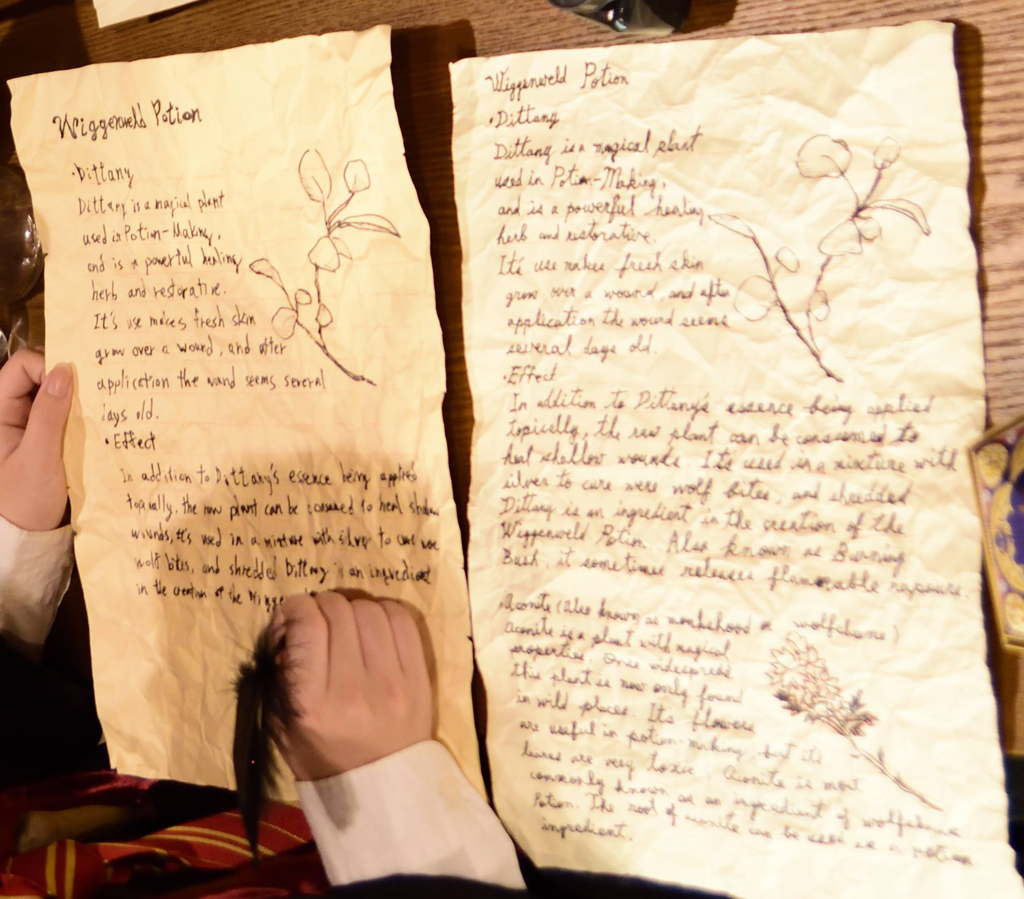 Wiggenweld Potion
•Dittany
Dittany is a magical plant
used in Potion-Making,
and is a powerful healing
herb and restorative.
It's use makes fresh skin
grow over a wound, and after
application the wand seems several
days old.
•Effect
In addition to Dittany's essence being applied
topically, the raw plant can be consumed to heal shallow
wounds, it's used in a mixture with silver to cure were
wolf bites, and shredded Dittany is an ingredient
in the creation of the
Wiggenweld Potion
•Dittany
Dittany is a magical plant
used in Potion-Making,
and is a powerful healing
herb and restorative.
It's use makes fresh skin
grow over a wound, and after
application the wound seems
several days old.
•Effect
In addition to Dittany's essence being applied
topically, the raw plant can be consumed to
heal shallow wounds. It's used in a mixture with
silver to cure were wolf bites, and shredded
Dittany is an ingredient in the creation of the
Wiggenweld Potion. Also known as Burning
Bush, it sometimes releases flammable vapours.
•Aconite (also known as monkshood or wolfsbane)
Aconite is a plant with magical
properties. Once widespread
this plant is now only found
in wild places. Its flowers
are useful in potion-making, but its
leaves are very toxic. Aconite is most
commonly known as an ingredient of wolfsbane
Potion. The root of aconite can be used as a potion
ingredient.